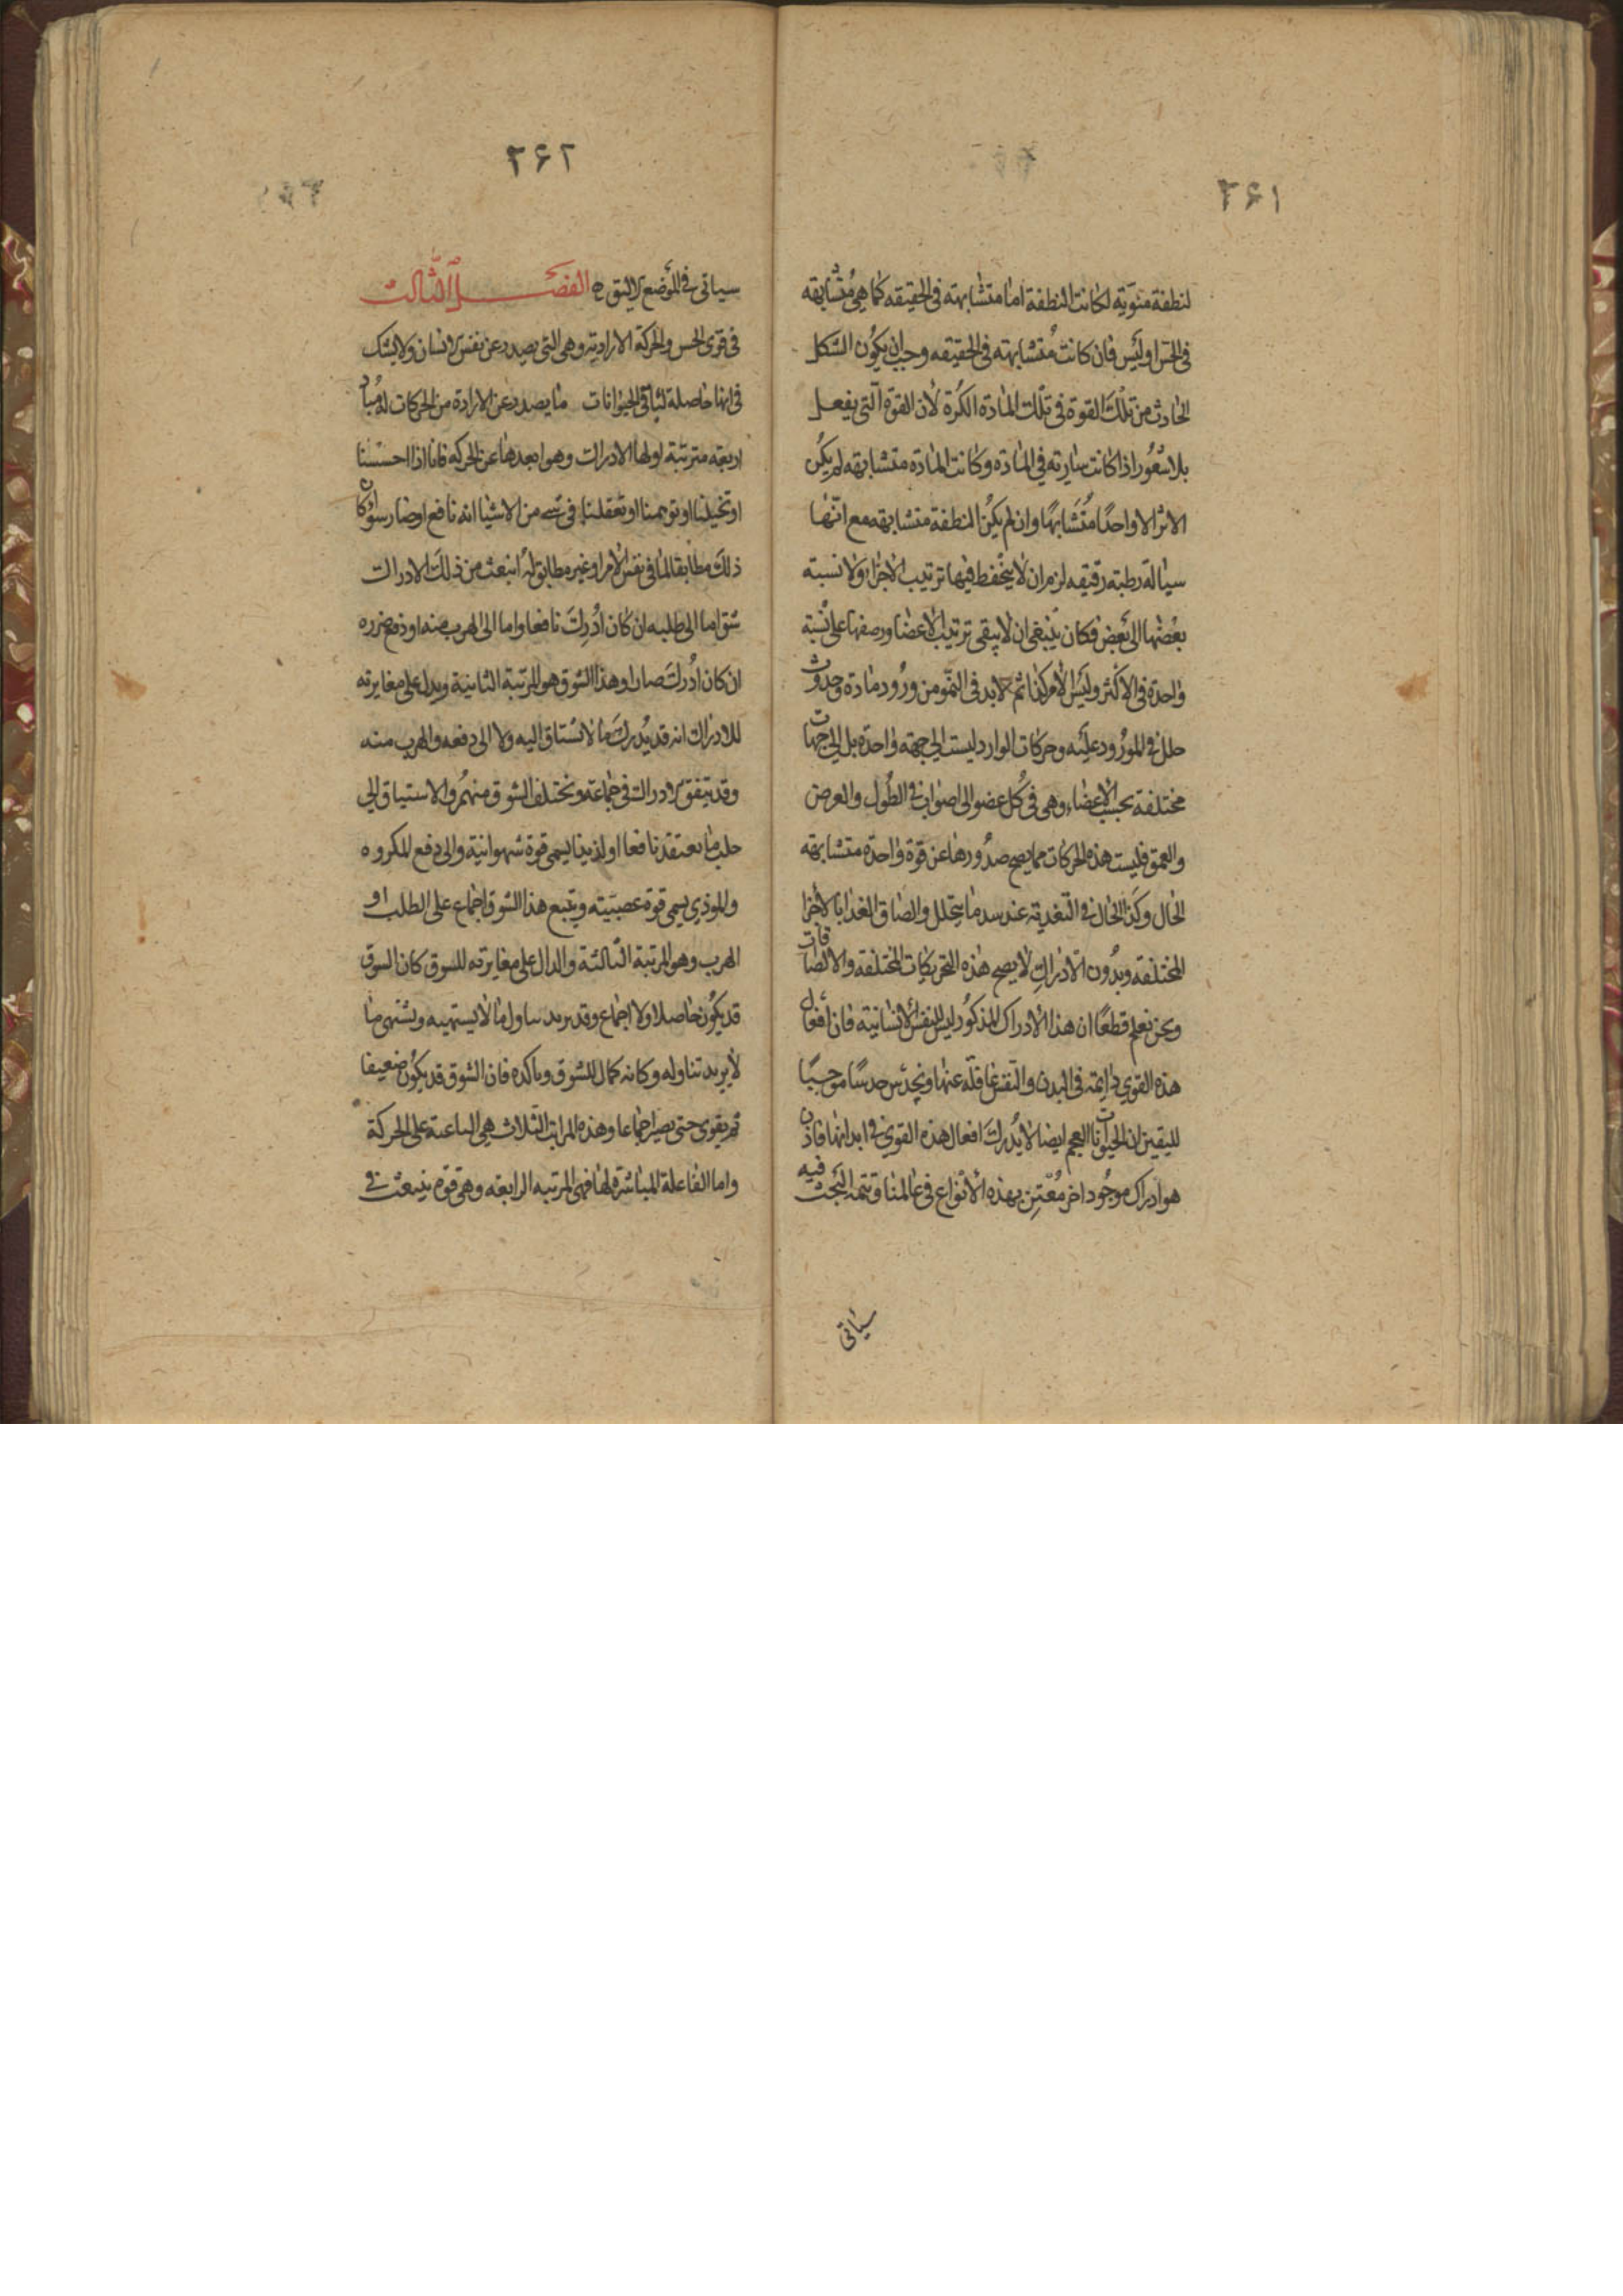 ٣٤١
لنطفة منوية لكانت النطفة اما متشابهته فى الحقيقه كما هى متشابهه
فى الحس او ليس فان كانت متشابهته فى الحقيقه وجب ان يكون الشكل
الحادث من تلك القوة فى تلك المادة الكرة لأن القوة التى يفعل
بلا شعور اذا كانت سارية فى المادة وكانت المادة متشابهه لم يكن
الاثر الا واحدًا متشابهًا وان لم يكن النطفة متشابهه مع انها
سيالة رطبة رقيقه لزم ان لا يحفظ فيها ترتيب الاجزاء ولا نسبة
بعضها الى بعض فكان ينبغى ان لا يبقى ترتيب الاعضا ورصفها على نسبة
واحدة فى الاكثر وليس الأمر كذا ثم لابد فى النمو من ورود مادة وحدوث
خلل فى المورود عليه وحركات الوارد ليست الى جهة واحدة بل الى جهات
مختلفة بحسب الاعضاء وهى فى كل عضو الى اصواب فى الطول والعرض
والعمق فليست هذه الحركات مما يصح صدورها عن قوة واحدة متشابهة
الحال وكذا الحال فى التغدية عند سد ما يتحلل والصاق الغدا بالاجزا
المختلفه وبدون الادراك لا يصح هذه التحريكات المختلفه والالصاقات
ونحن نعلم قطعًا ان هذا الادراك المذكور ليس للنفس الانسانية فان افعال
هذه القوى دايمة فى البدن والنفس غافلة عنها ونحدس حدسًا موجبًا
لليقين ان الحيوانات العجم ايضا لا يدرك افعال هذه القوى فى ابدانها فاذن
هو ادراك موجود اخر معتن بهذه الأنواع فى عالمنا وتتمة البحث فيه
سياتى
٣٤٢
سياتى فى الموضع الاليق به الفصل الثالث
فى قوى الحس والحركة الارادية وهى التى يصدر عن نفس الانسان ولا يشك
فى انها حاصلة لباقى الحيوانات ما يصدر عن الارادة من الحركات له مباد
اربعة مترتبة اولها الادراك وهو ابعدها عن الحركه فانا اذا احسسنا
او تخيلنا او توهمنا او تعقلنا فى شى من الاشيا انه نافع او ضار سوا كان
ذلك مطابقا لما فى نفس الأمر او غير مطابق له انبعث من ذلك الادراك
شوق اما الى طلبه ان كان ادرك نافعا واما الى الهرب منه او دفع ضرره
ان كان ادرك ضارا وهذا الشوق هو المرتبة الثانية ويدل على مغايرته
للادراك انه قد يدرك ما لا نشتاق اليه ولا الى دفعه والهرب منه
وقد يتفق الادراك فى جماعة ويختلف الشوق منهم والاستياق الى
جلب ما يعتقد نافعا او لذيذا يسمى قوة شهوانية والى دفع المكروه
والموذى يسمى قوة غضبية ويتبع هذا الشوق اجماع على الطلب او
الهرب وهو المرتبة الثالثة والدال على مغايرته للشوق كان الشوق
قد يكون حاصلا ولا اجماع وقد يريد تناول ما لا يشتهيه ويشتهى ما
لا يريد تناوله وكانه كمال للشوق وتاكده فان الشوق قد يكون ضعيفا
ثم يقوى حتى يصير اجماعا وهذه المراتب الثلاث هى الباعثة على الحركة
واما الفاعلة المباشرة لها فهى المرتبه الرابعه وهى قوة ينبعث فى